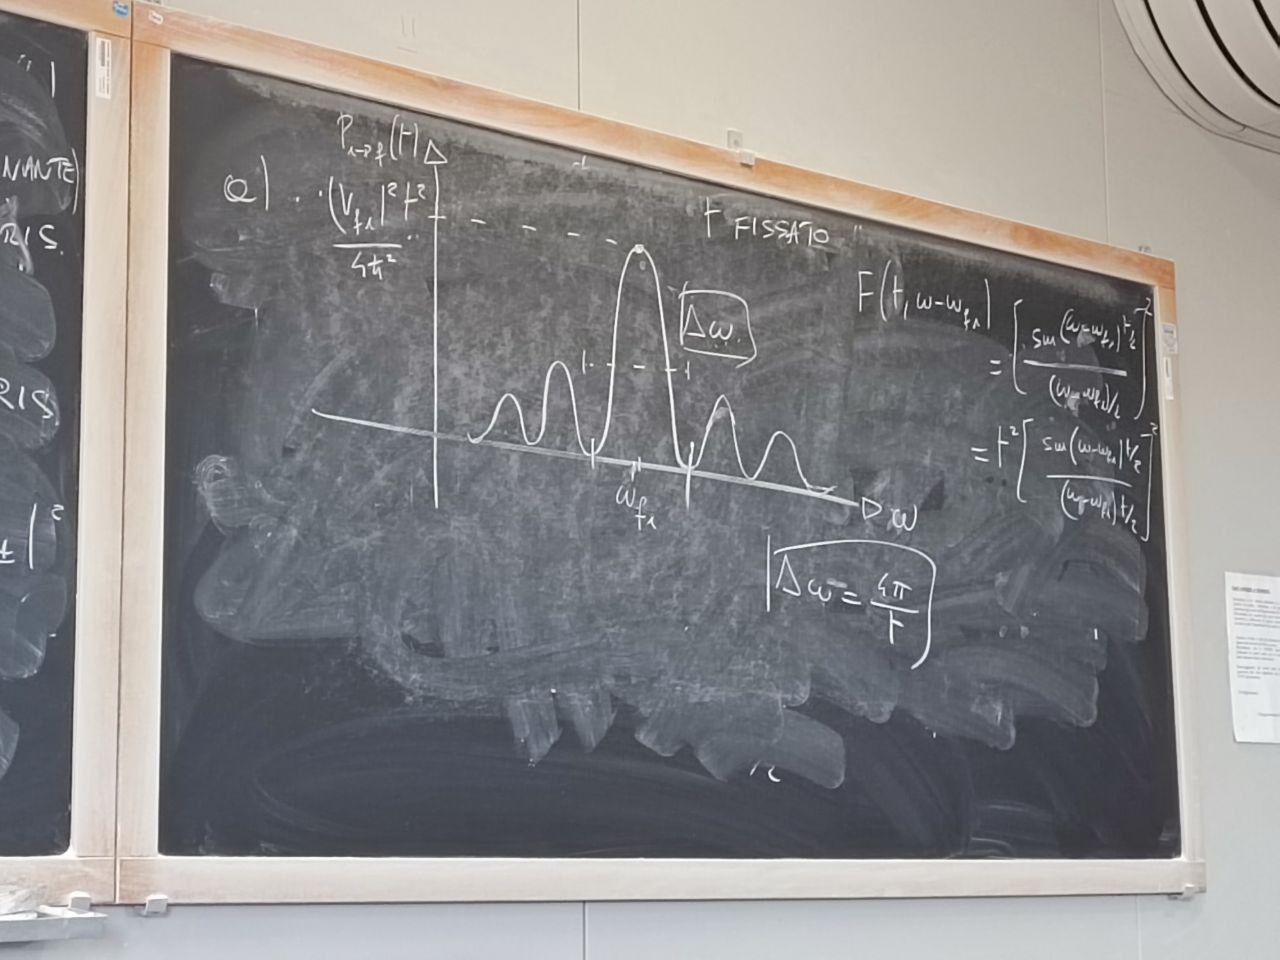 NANTE)
RIS.
RIS
t|²
P_{i→f}(t)
a) |V_{fi}|² t²
4ħ²
t FISSATO
Δω
F(t, ω-ω_{fi})
= [sin(ω-ω_{fi})t/2 / (ω-ω_{fi})/2]²
= t² [sin(ω-ω_{fi})t/2 / (ω-ω_{fi})t/2]²
ω_{fi}
ω
Δω = 4π/t